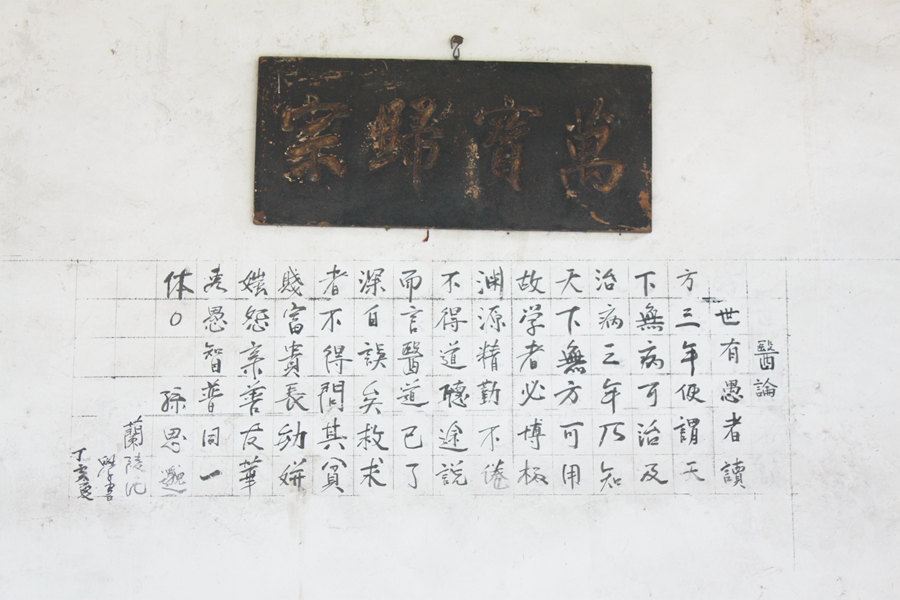 萬寶歸
醫論
世有愚者讀
方三年便謂天
下無病可治及
治病三年乃知
天下無方可用
故学者必博极
渊源精勤不倦
不得道聽途説
而言醫道已了
深自誤矣救求
者不得問其貧
賤富貴長幼妍
媸怨亲善友華
夷愚智普同一
体○ 孫思邈
蘭陵沈
丁亥夏